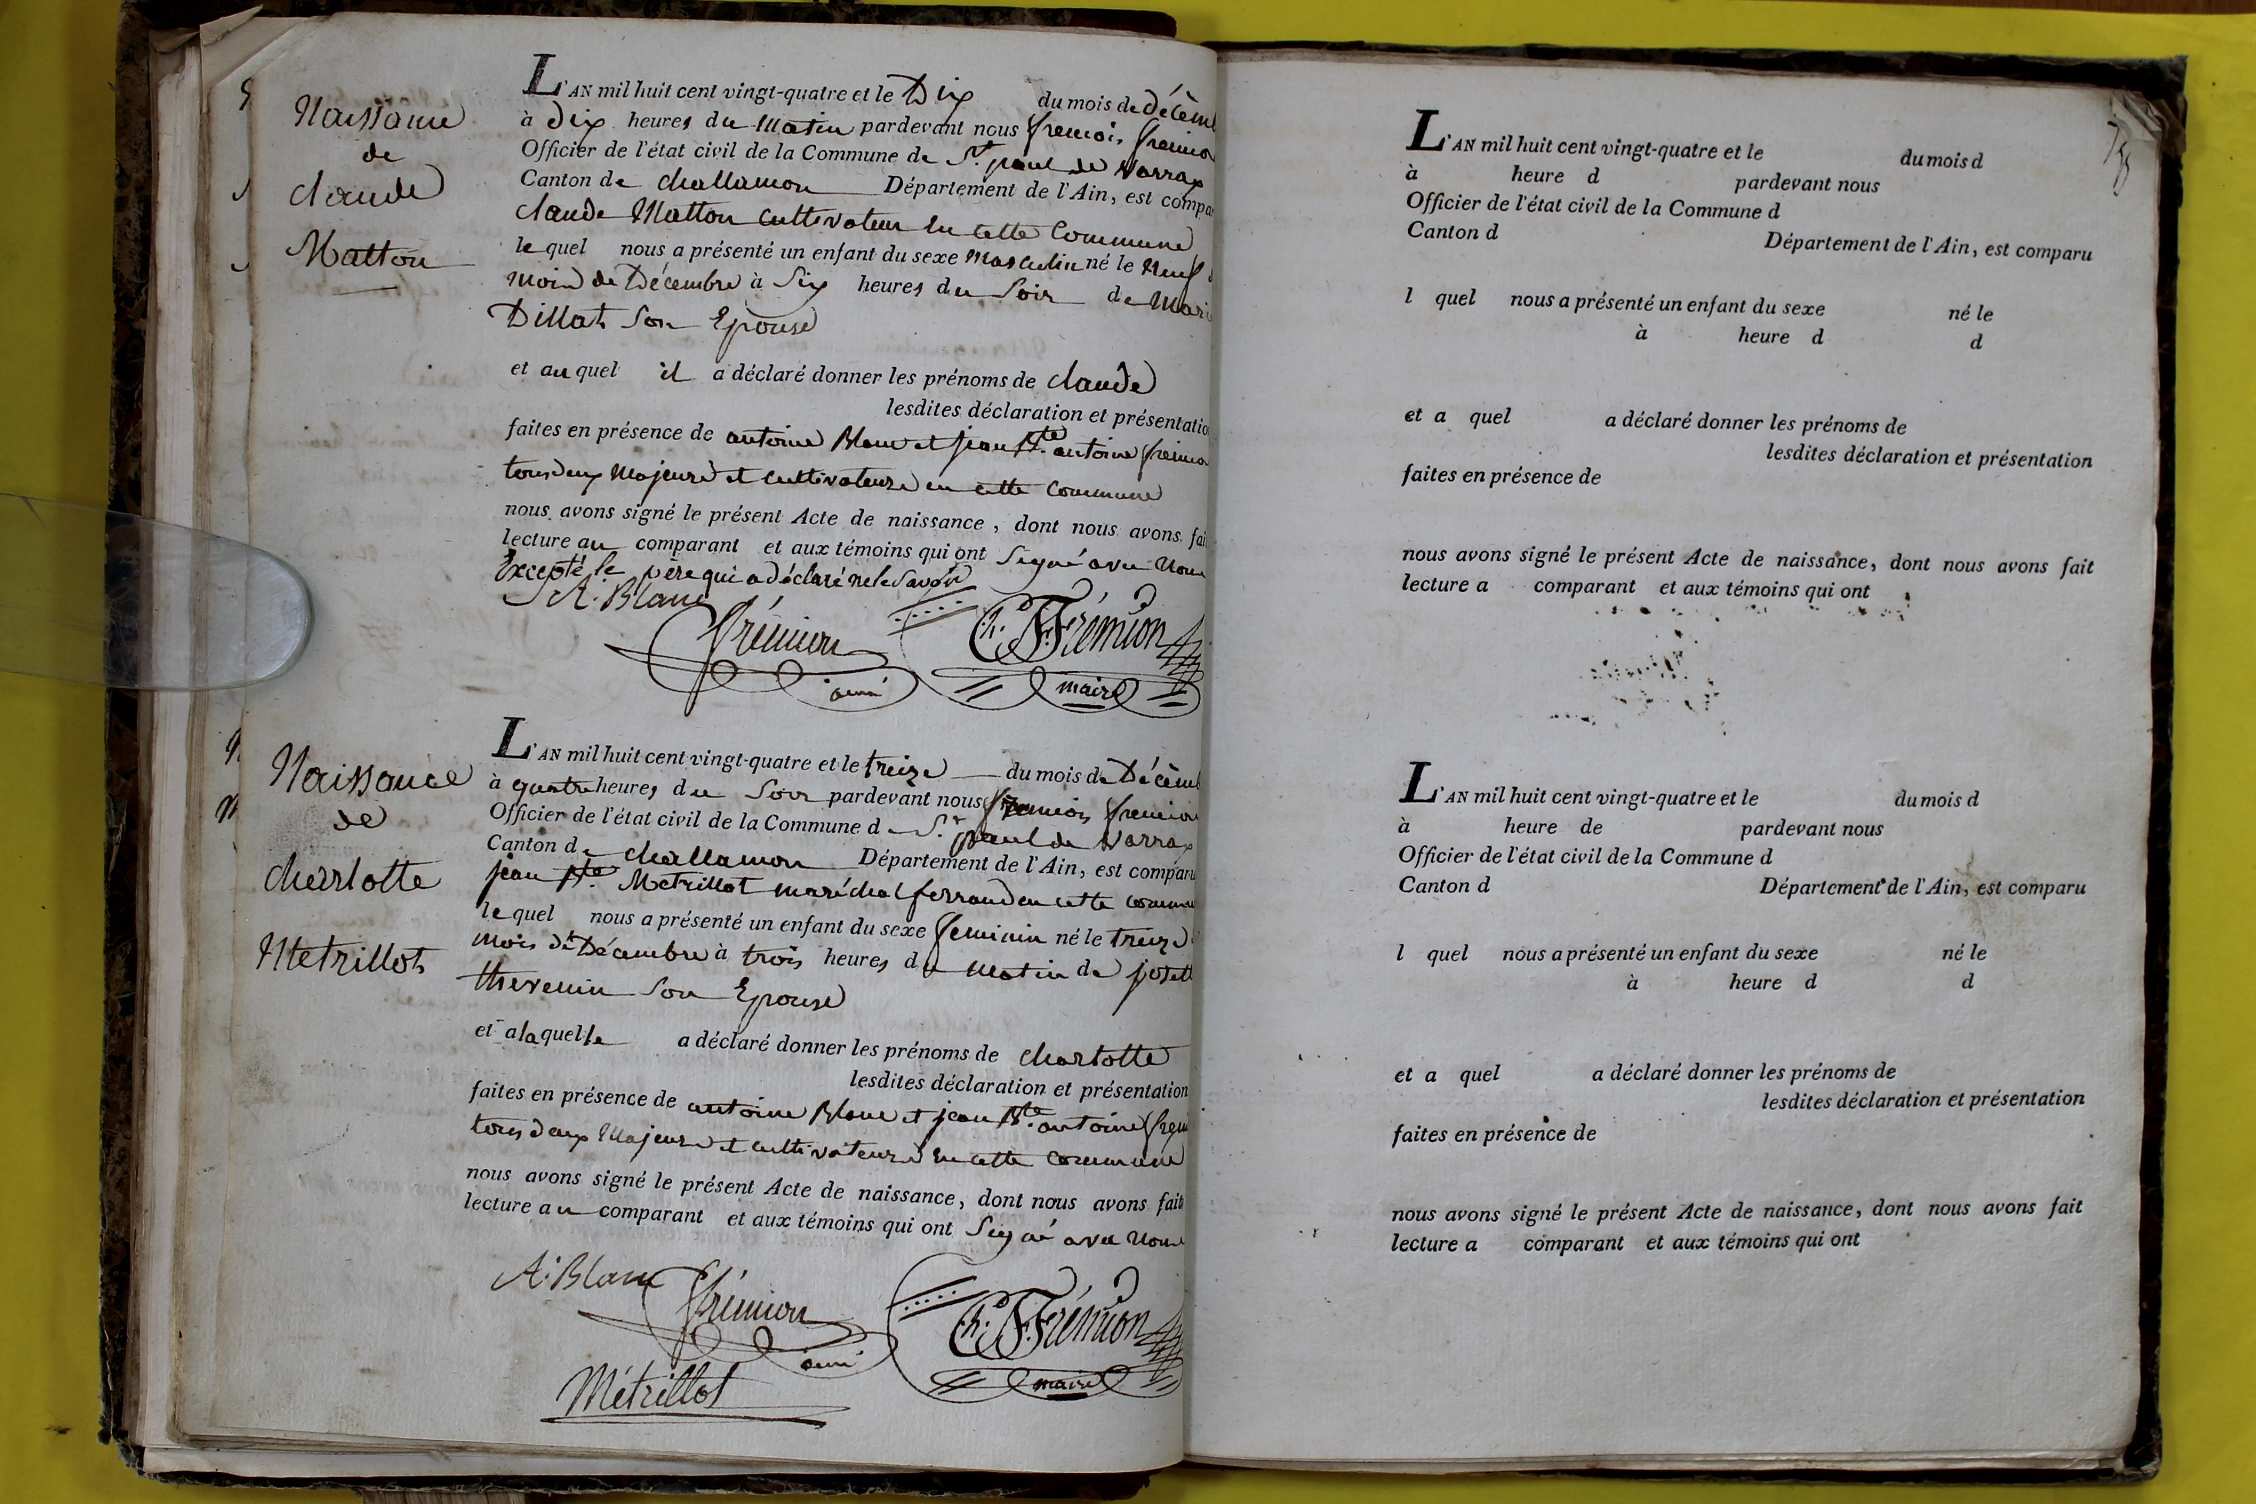 Naissance
de
claude
Matton
L'AN mil huit cent vingt-quatre et le Dix du mois de décemb
à dix heures du Matin pardevant nous francois fremion
Officier de l'état civil de la Commune de St. paul de Varrax
Canton de challamon Département de l'Ain, est compar
claude Matton cultivateur en cette Commune
le quel nous a présenté un enfant du sexe Masculin né le Neuf d
mois de Décembre à Six heures du Soir de Mari
Dillat Son Epouse
et au quel il a déclaré donner les prénoms de claude
lesdites déclaration et présentatio
faites en présence de antoine Blanc et jean Bte. antoine fremio
tous deux Majeurs et cultivateurs en cette Commune
nous avons signé le présent Acte de naissance, dont nous avons fai
lecture au comparant et aux témoins qui ont Signé avec Nous
Excepté le père qui a déclaré ne le Savoir
A. Blanc
frémion
Ch. F. Frémion
maire
Naissance
de
charlotte
Metrillot
L'AN mil huit cent vingt-quatre et le treize du mois de Décemb
à quatre heures du Soir pardevant nous francois fremion
Officier de l'état civil de la Commune de St. paul de Varrax
Canton de challamon Département de l'Ain, est comparu
jean Bte. Metrillot maréchal ferrand en cette commu
le quel nous a présenté un enfant du sexe feminin né le treize
mois de Décembre à trois heures du Matin de josett
thevenin Son Epouse
et a laquelle a déclaré donner les prénoms de charlotte
lesdites déclaration et présentation
faites en présence de antoine Blanc et jean Bte. antoine fremi
tous deux Majeurs et cultivateurs en cette commune
nous avons signé le présent Acte de naissance, dont nous avons fait
lecture au comparant et aux témoins qui ont Signé avec Nous
A. Blanc
frémion
Ch. F. Frémion
maire
Métrillot
L'AN mil huit cent vingt-quatre et le du mois d
à heure d pardevant nous
Officier de l'état civil de la Commune d
Canton d Département de l'Ain, est comparu
l quel nous a présenté un enfant du sexe né le
à heure d d
et a quel a déclaré donner les prénoms de
lesdites déclaration et présentation
faites en présence de
nous avons signé le présent Acte de naissance, dont nous avons fait
lecture a comparant et aux témoins qui ont
L'AN mil huit cent vingt-quatre et le du mois d
à heure de pardevant nous
Officier de l'état civil de la Commune d
Canton d Département de l'Ain, est comparu
l quel nous a présenté un enfant du sexe né le
à heure d d
et a quel a déclaré donner les prénoms de
lesdites déclaration et présentation
faites en présence de
nous avons signé le présent Acte de naissance, dont nous avons fait
lecture a comparant et aux témoins qui ont